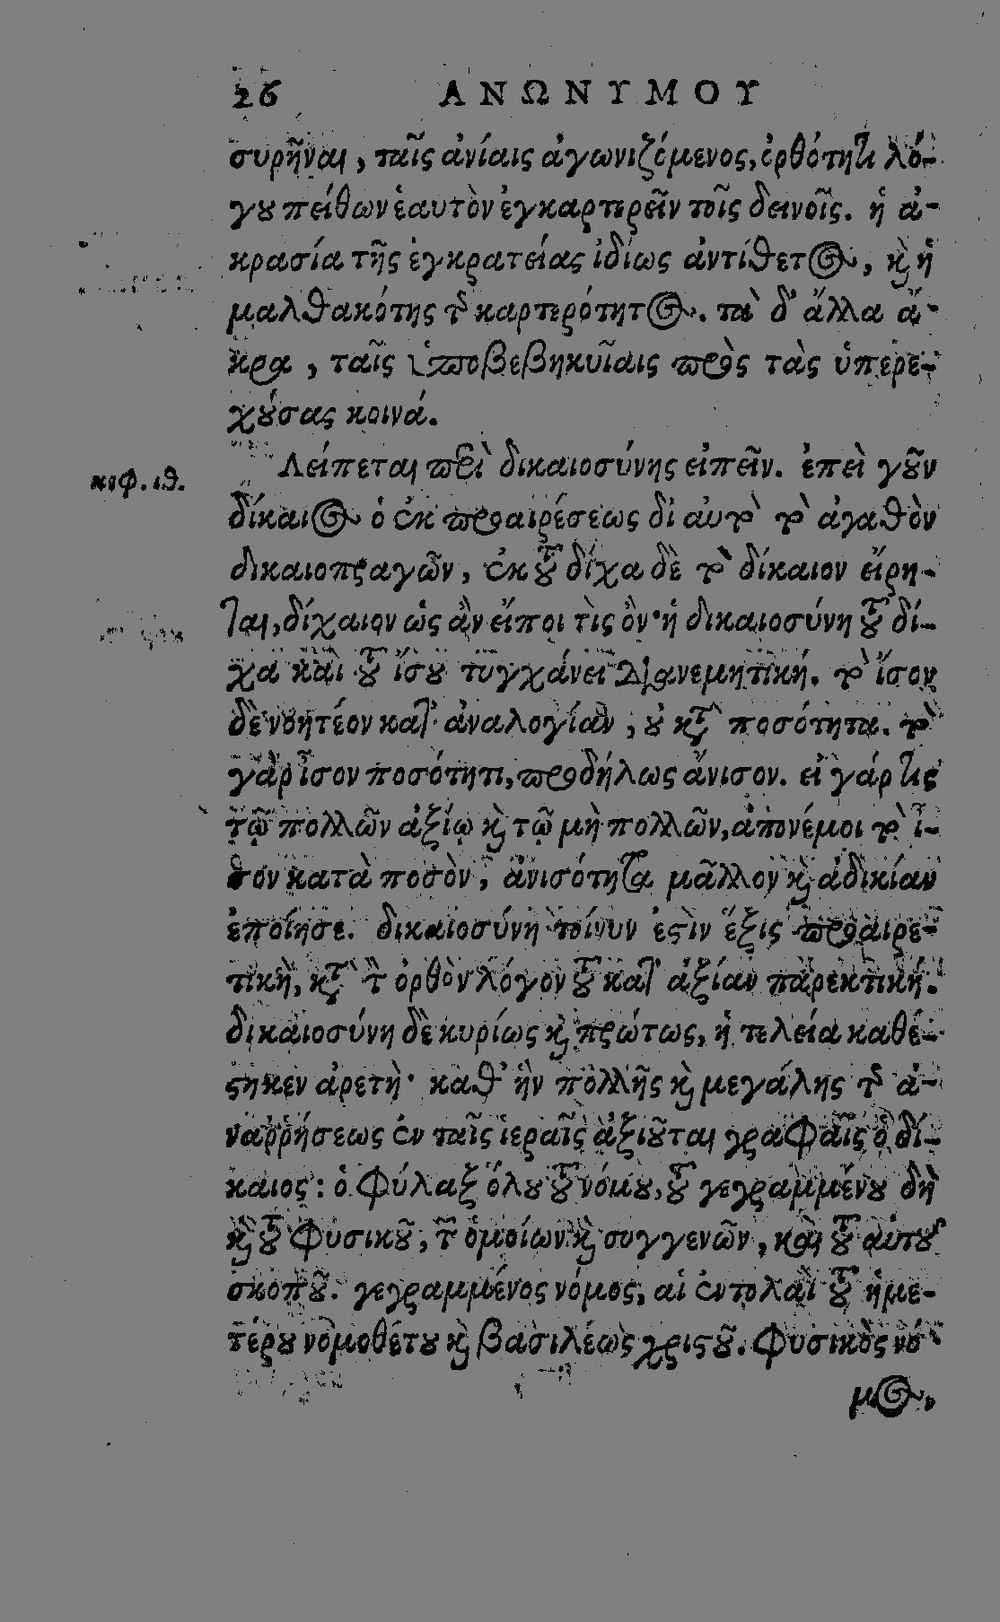 26 ΑΝΩΝΥΜΟΥ
συρῆναι, ταῖς ἀνίαις ἀγωνιζόμενος, ὀρθότητι λό-
γου πείθων ἑαυτὸν ἐγκαρτερεῖν τοῖς δεινοῖς. ἡ ἀ-
κρασία τῆς ἐγκρατείας ἰδίως ἀντίθετος, καὶ ἡ
μαλθακότης τῆς καρτερότητος. τὰ δ' ἄλλα ἄ-
κρα, ταῖς ὑποβεβηκυῖαις πρὸς τὰς ὑπερε-
χούσας κοινά.
Λείπεται περὶ δικαιοσύνης εἰπεῖν. ἐπεὶ γοῦν
κεφ. ιθ.
δίκαιος ὁ ἐκ προαιρέσεως δι αὐτὸ τὸ ἀγαθὸν
δικαιοπραγῶν, ἐκ τοῦ δίχα δὲ τὸ δίκαιον εἴρη-
ται, δίχαιον ὡς ἂν εἴποι τὶς ὂν· ἡ δικαιοσύνη τοῦ δί-
χα καὶ τοῦ ἴσου τυγχάνει διανεμητική. τὸ ἴσον
δὲ νοητέον κατ' ἀναλογίαν, οὐ κατὰ ποσότητα. τὸ
γὰρ ἶσον ποσότητι, προδήλως ἄνισον. εἰ γάρ τις
τῷ πολλῶν ἀξίῳ καὶ τῷ μὴ πολλῶν, ἀπονέμοι τὸ ἶ-
σον κατὰ ποσὸν, ἀνισότητα μᾶλλον καὶ ἀδικίαν
ἐποίησε. δικαιοσύνη τοίνυν ἐστὶν ἕξις προαιρε-
τικὴ, κατὰ τὸν ὀρθὸν λόγον τοῦ κατ' ἀξίαν παρεκτική.
δικαιοσύνη δὲ κυρίως καὶ πρώτως, ἡ τελεία καθέ-
στηκεν ἀρετὴ· καθ' ἣν πολλῆς καὶ μεγάλης τῆς ἀ-
ναῤῥήσεως ἐν ταῖς ἱεραῖς ἀξιοῦται γραφαῖς ὁ δί-
καιος: ὁ φύλαξ ὅλου τοῦ νόμου, τοῦ γεγραμμένου δὴ
καὶ τοῦ φυσικοῦ, τῶν ὁμοίων καὶ συγγενῶν, καὶ τοῦ αὐτοῦ
σκοποῦ. γεγραμμένος νόμος, αἱ ἐντολαὶ τοῦ ἡμε-
τέρου νομοθέτου καὶ βασιλέως χριστοῦ. φυσικὸς νό-
μος,